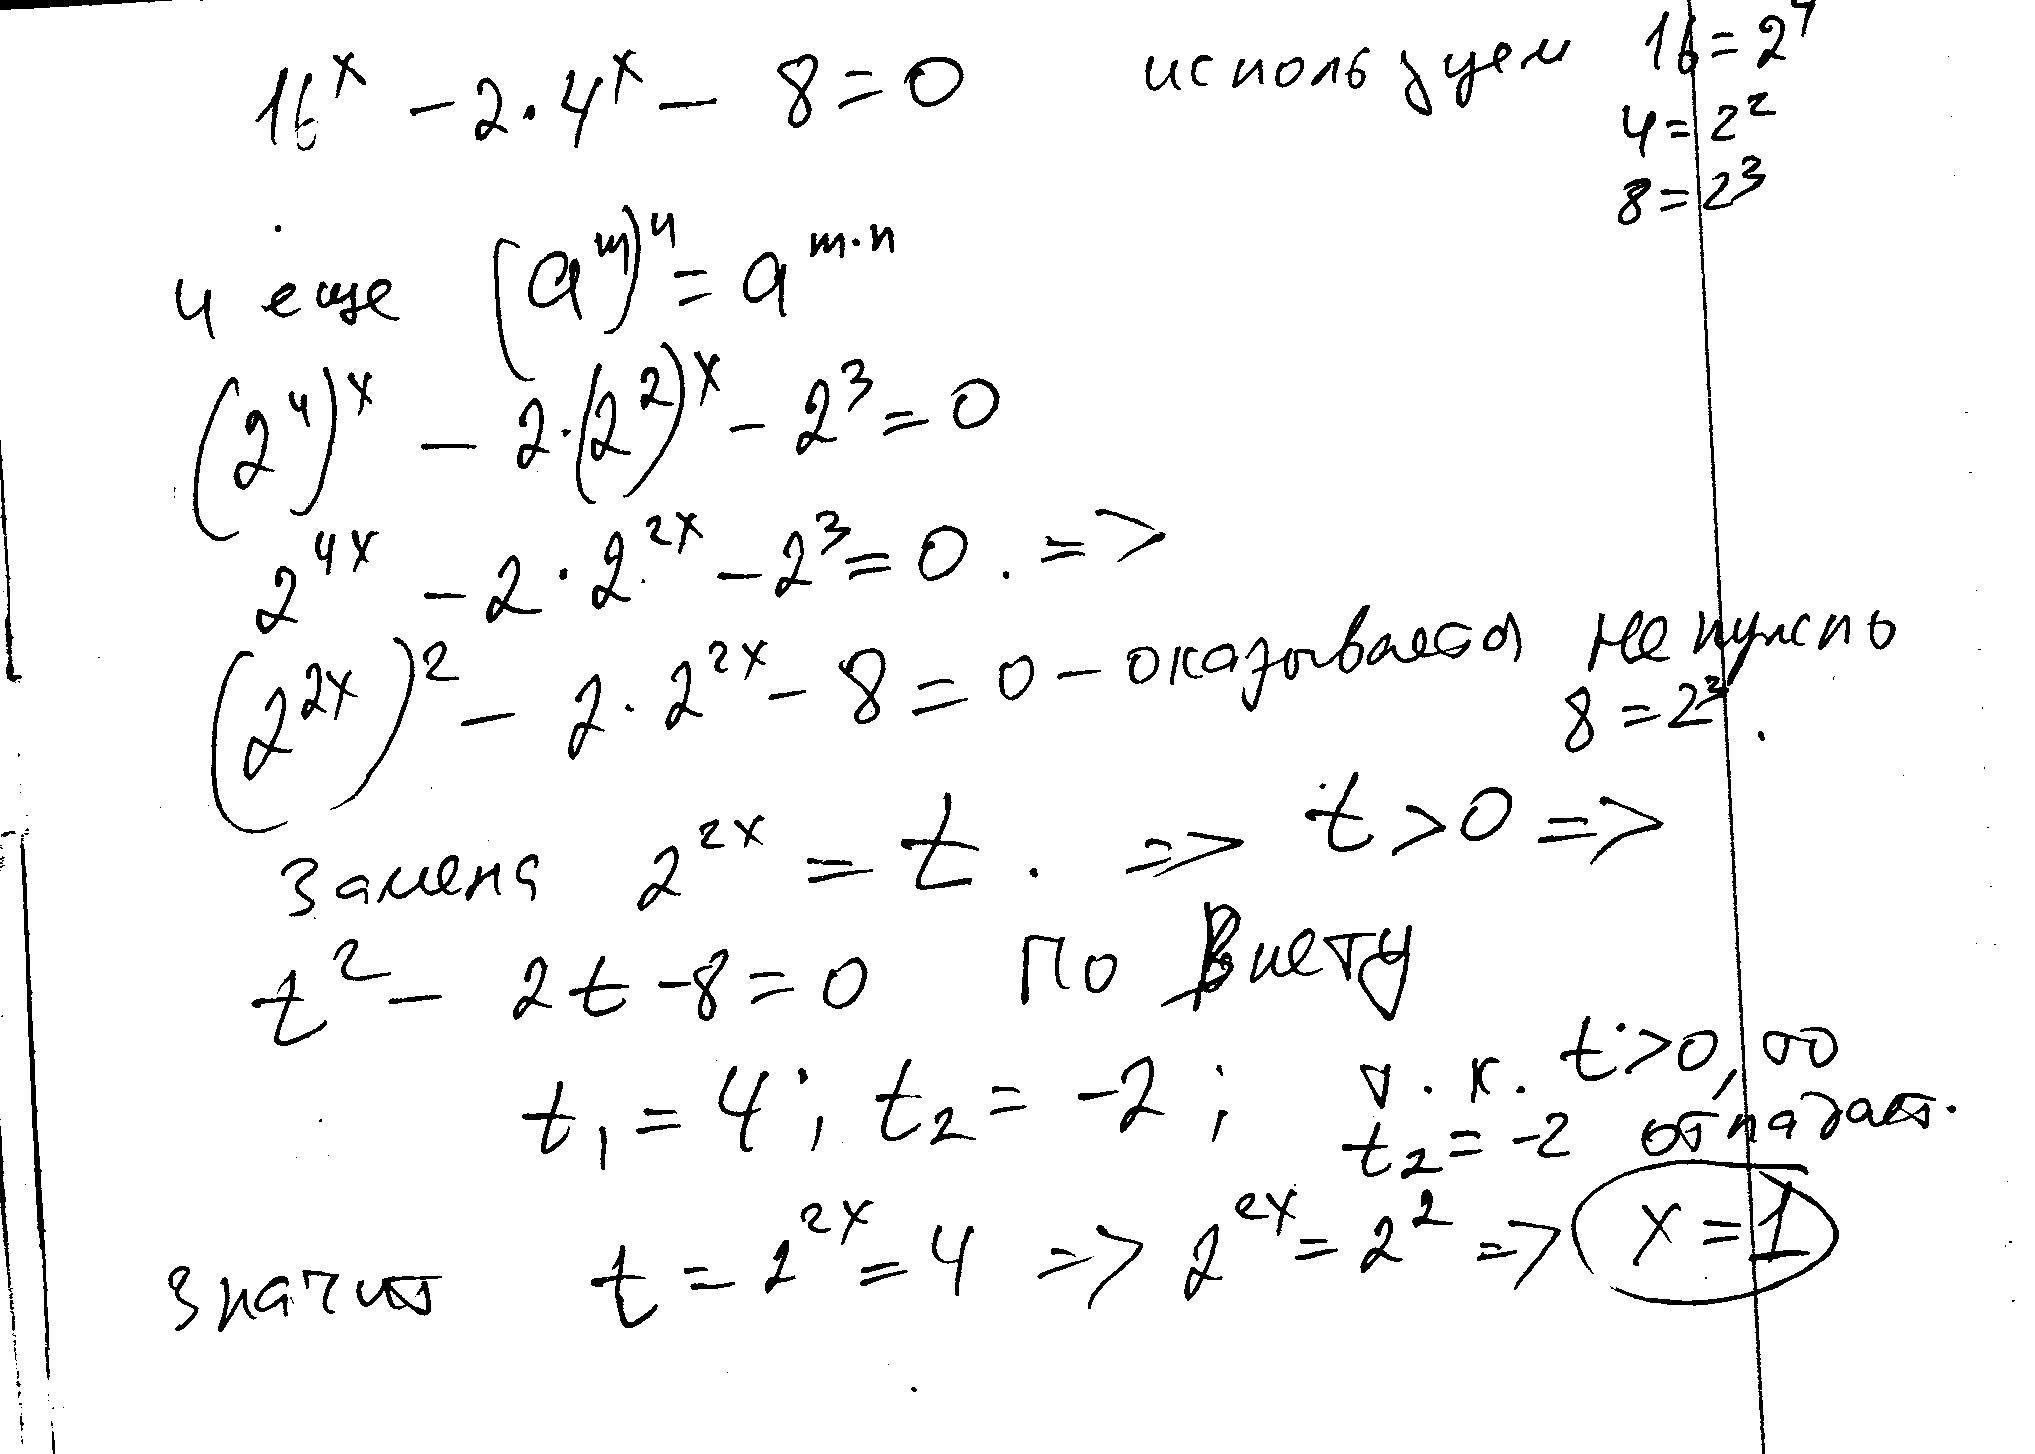 16ˣ - 2·4ˣ - 8 = 0 используем 16 = 2⁴
4 = 2²
8 = 2³
и еще (aᵐ)ⁿ = aᵐ·ⁿ
(2⁴)ˣ - 2·(2²)ˣ - 2³ = 0
2⁴ˣ - 2·2²ˣ - 2³ = 0. =>
(2²ˣ)² - 2·2²ˣ - 8 = 0 - оказывается не нужно
8 = 2³.
Замена 2²ˣ = t. => t > 0 =>
t² - 2t - 8 = 0 По Виету
t₁ = 4; t₂ = -2; т.к. t > 0, то
t₂ = -2 отпадает.
значит t = 2²ˣ = 4 => 2²ˣ = 2² => x = 1